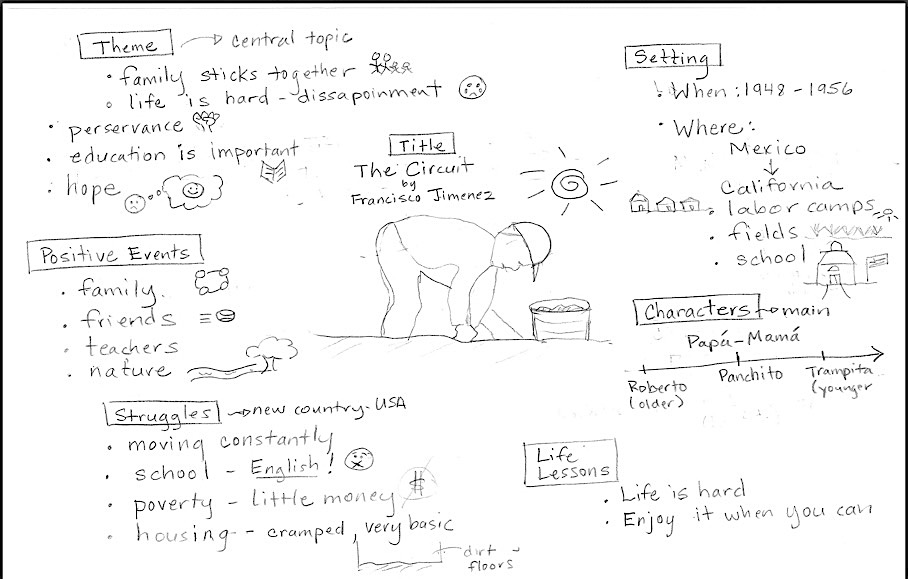 Theme → central topic
• family sticks together
• life is hard - dissapoinment
• perservance
• education is important
• hope
Title
The Circuit
by
Francisco Jimenez
Setting
• When: 1948 - 1956
• Where:
Mexico
↓
California
• labor camps
• fields
• school
Positive Events
• family
• friends
• teachers
• nature
Characters → main
Papá - Mamá
Roberto
(older)
Panchito
Trampita
(younger
Struggles → new country - USA
• moving constantly
• school - English!
• poverty - little money $
• housing - cramped, very basic
dirt
floors
Life
Lessons
• Life is hard
• Enjoy it when you can